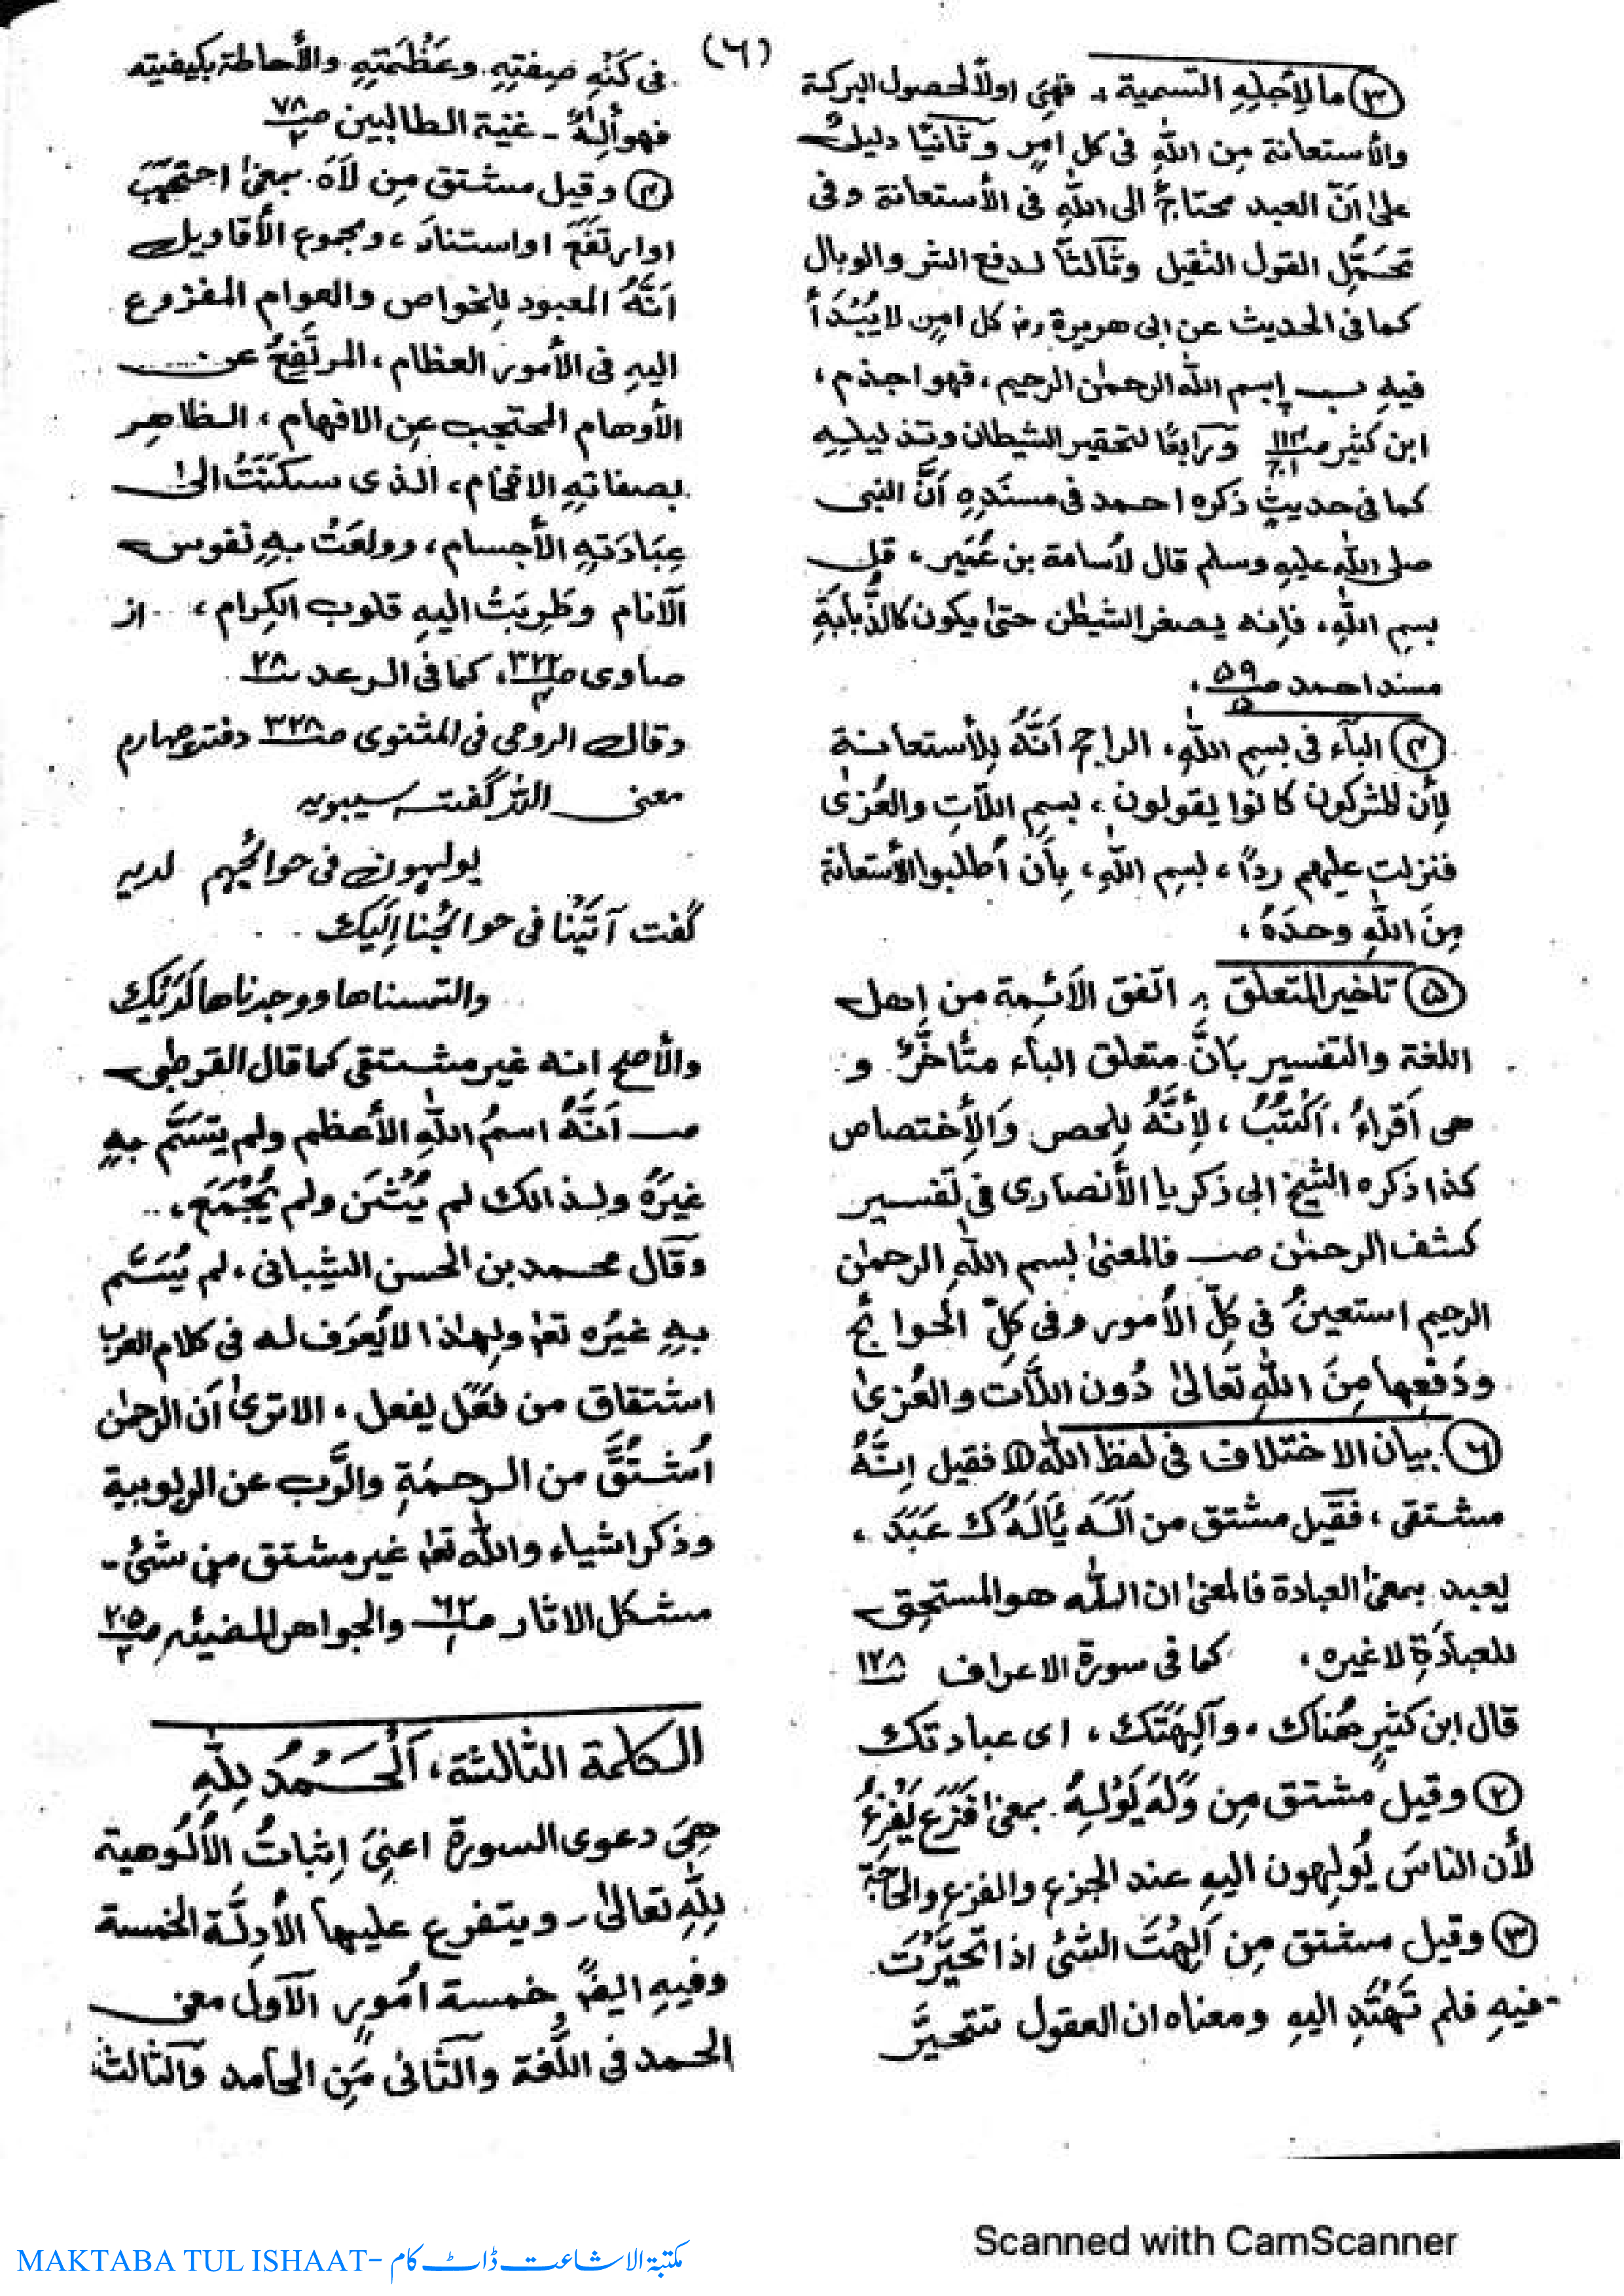 (٦)
③ ما لِأجلِهِ التسمية :۔ فهِيَ اولاً لحصول البركة
والأستعانة مِن اللهِ فى كل امرٍ وثَانيًا دليلٌ
علىٰ اَنّ العبد محتاجٌ الى اللهِ فى الأستعانة وفى
تحمُّلِ القول الثقيل وثَالثًا لدفع الشر والوبال
كما فى الحديث عن ابى هريرة رض كل امرٍ لا يُبْدَأُ
فيهِ بـ بِسم الله الرحمٰن الرحيم، فهو اجذم،
ابن كثير صـ ورَابعًا لتحقير الشيطان وتذليلِهِ
كما فى حديثٍ ذكره احمد فى مسنَدِهِ اَنَّ النبى
صلى الله عليه وسلم قال لأسامة بن عُمَير، قل
بسمِ اللهِ، فإنه يصغر الشيطٰن حتىٰ يكون كالذُّبابَةِ
مسند احمد صـ ٥٩/٥ ،
④ البآء فى بسمِ اللهِ، الراجح اَنَّهُ لِلأستعانة
لِأن المشركون كانوا يقولون، بسمِ اللّاتِ والعُزىٰ
فنزلت عليهم ردًا، بسمِ اللهِ، بِأن أطلبوا الأستعانة
مِنَ اللهِ وحدَهُ،
⑤ تاخير المتعلق :۔ اتّفق الأئمة من اهل
اللغة والتفسير بَانَّ متعلق البآء متأخّرٌ و
هى اَقراءُ، اَكْتُبُ، لِأنَّهُ لِلحصر وَالِأختصاص
كذا ذكره الشيخ ابى ذكريا الأنصارى فى تفسير
كشف الرحمٰن صـ فالمعنىٰ بسم اللهِ الرحمٰن
الرحيم استعينُ فى كلِّ الأمور وفى كلِّ الحوائج
ودَفعِها مِنَ اللهِ تعالىٰ دُون اللّاَت والعُزىٰ
⑥ بيان الاختلاف فى لفظ الله ① فقيل اِنَّهُ
مشتق، فقيل مشتق من اَلَهَ يَألَهُ ك عَبَدَ،
يعبد بمعنىٰ العبادة فالمعنىٰ ان الله هو المستحق
للعبادَةِ لا غيره، كما فى سورة الاعراف ١٢٨
قال ابن كثيرٍ هُناك، وآلِهَتَك، اى عبادتك
② وقيل مشتق مِن وَلَهَ يَوْلِهُ بمعنىٰ فَزَع يَفْزعُ
لأن الناسَ يُولِهون اليهِ عند الجزع والفزع والحاجة
③ وقيل مشتق مِن اَلِهْتَ الشئ اذا تحيَّرْتَ
فيهِ فلم تَهْتَدِ اليهِ ومعناه ان العقول تتحيَّر
فى كَنْهِ صِفتِهِ وعَظْمَتِهِ والأحاطة بكيفيته
فهو ألِهٌ ۔ غنية الطالبين صـ ٧٨/٢
④ وقيل مشتق مِن لَاهَ بمعنىٰ احتَجَبَ
اوارتَفَعَ او استنادَ، ومجموع الأقاويل
اَنَّهُ المعبود لِلخواص والعوام المفزوع
اليهِ فى الأمور العظام، المرتَفِعُ عن
الأوهام المحتجب عن الافهام، الظاهر
بصفاتهِ الافخام، الذى سكَنَتْ الىٰ
عِبَادَتهِ الأجسام، وولِعَتْ بهِ نفوس
الآنام وطَرِبَتْ اليهِ قلوب الكِرام، از
صاوى صـ ٣٢٢، كما فى الرعد ٢٨
وقال الرومى فى المثنوى صـ ٣٢٨ دفتر چهارم
معنى اللہ گفت سیبویہ
یولہون فی حوائجہم لدیہ
گفت آتَیْنا فی حوائجنا اِلَیک
والتمسناها ووجدناها لَدَیْک
والأصح انه غير مشتق كما قال القرطبى
صـ اَنَّهُ اسمُ اللهِ الأعظم ولم يتسَمَّ بهِ
غيرَهُ ولذالك لم يُثْنَ ولم يُجْمَع،
وقال محمد بن الحسن الشيبانى، لم يُسَمَّ
بهِ غيرُه تعٰ ولِهٰذا لا يُعرَف له فى كلام العرب
اشتقاق من فَعَل يفعل، الا ترىٰ اَن الرحمٰن
اُشتُقَّ من الرحمَةِ والرَّب عن الربوبية
وذكر اشياء والله تعٰ غير مشتق من شئ ۔
مشكل الاثار صـ ٦٢/١ والجواهر المضيئه صـ ٢٠٥/٢
الكلمة الثالثة، اَلْحَمْدُ لِلّٰهِ
هِىَ دعوى السورة اعنِىَ اِثباتُ الأُلُوهية
لِلّٰهِ تعالىٰ ۔ ويتفرع عليها الأدِلَّة الخمسة
وفيهِ ايضًا خمسة اُمورٍ الآول معنى
الحمد فى اللُغة والثَانى مَنِ الحامد والثالث
Scanned with CamScanner
MAKTABA TUL ISHAAT- مکتبۃ الاشاعت ڈاٹ کام